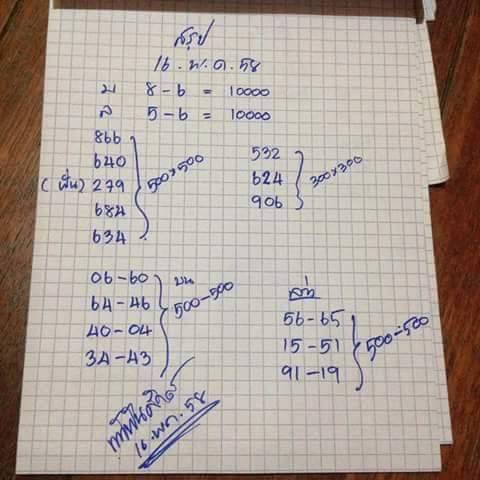 สรุป
16 . พ . ค . 58
บ 8 - 6 = 10000
ล 5 - 6 = 10000
866
640
279
684
634
500×500
532
624
906
300×300
06-60
64-46
40-04
34-43
บน
500-500
ล่าง
56-65
15-51
91-19
500-500
16.พ.ค.58